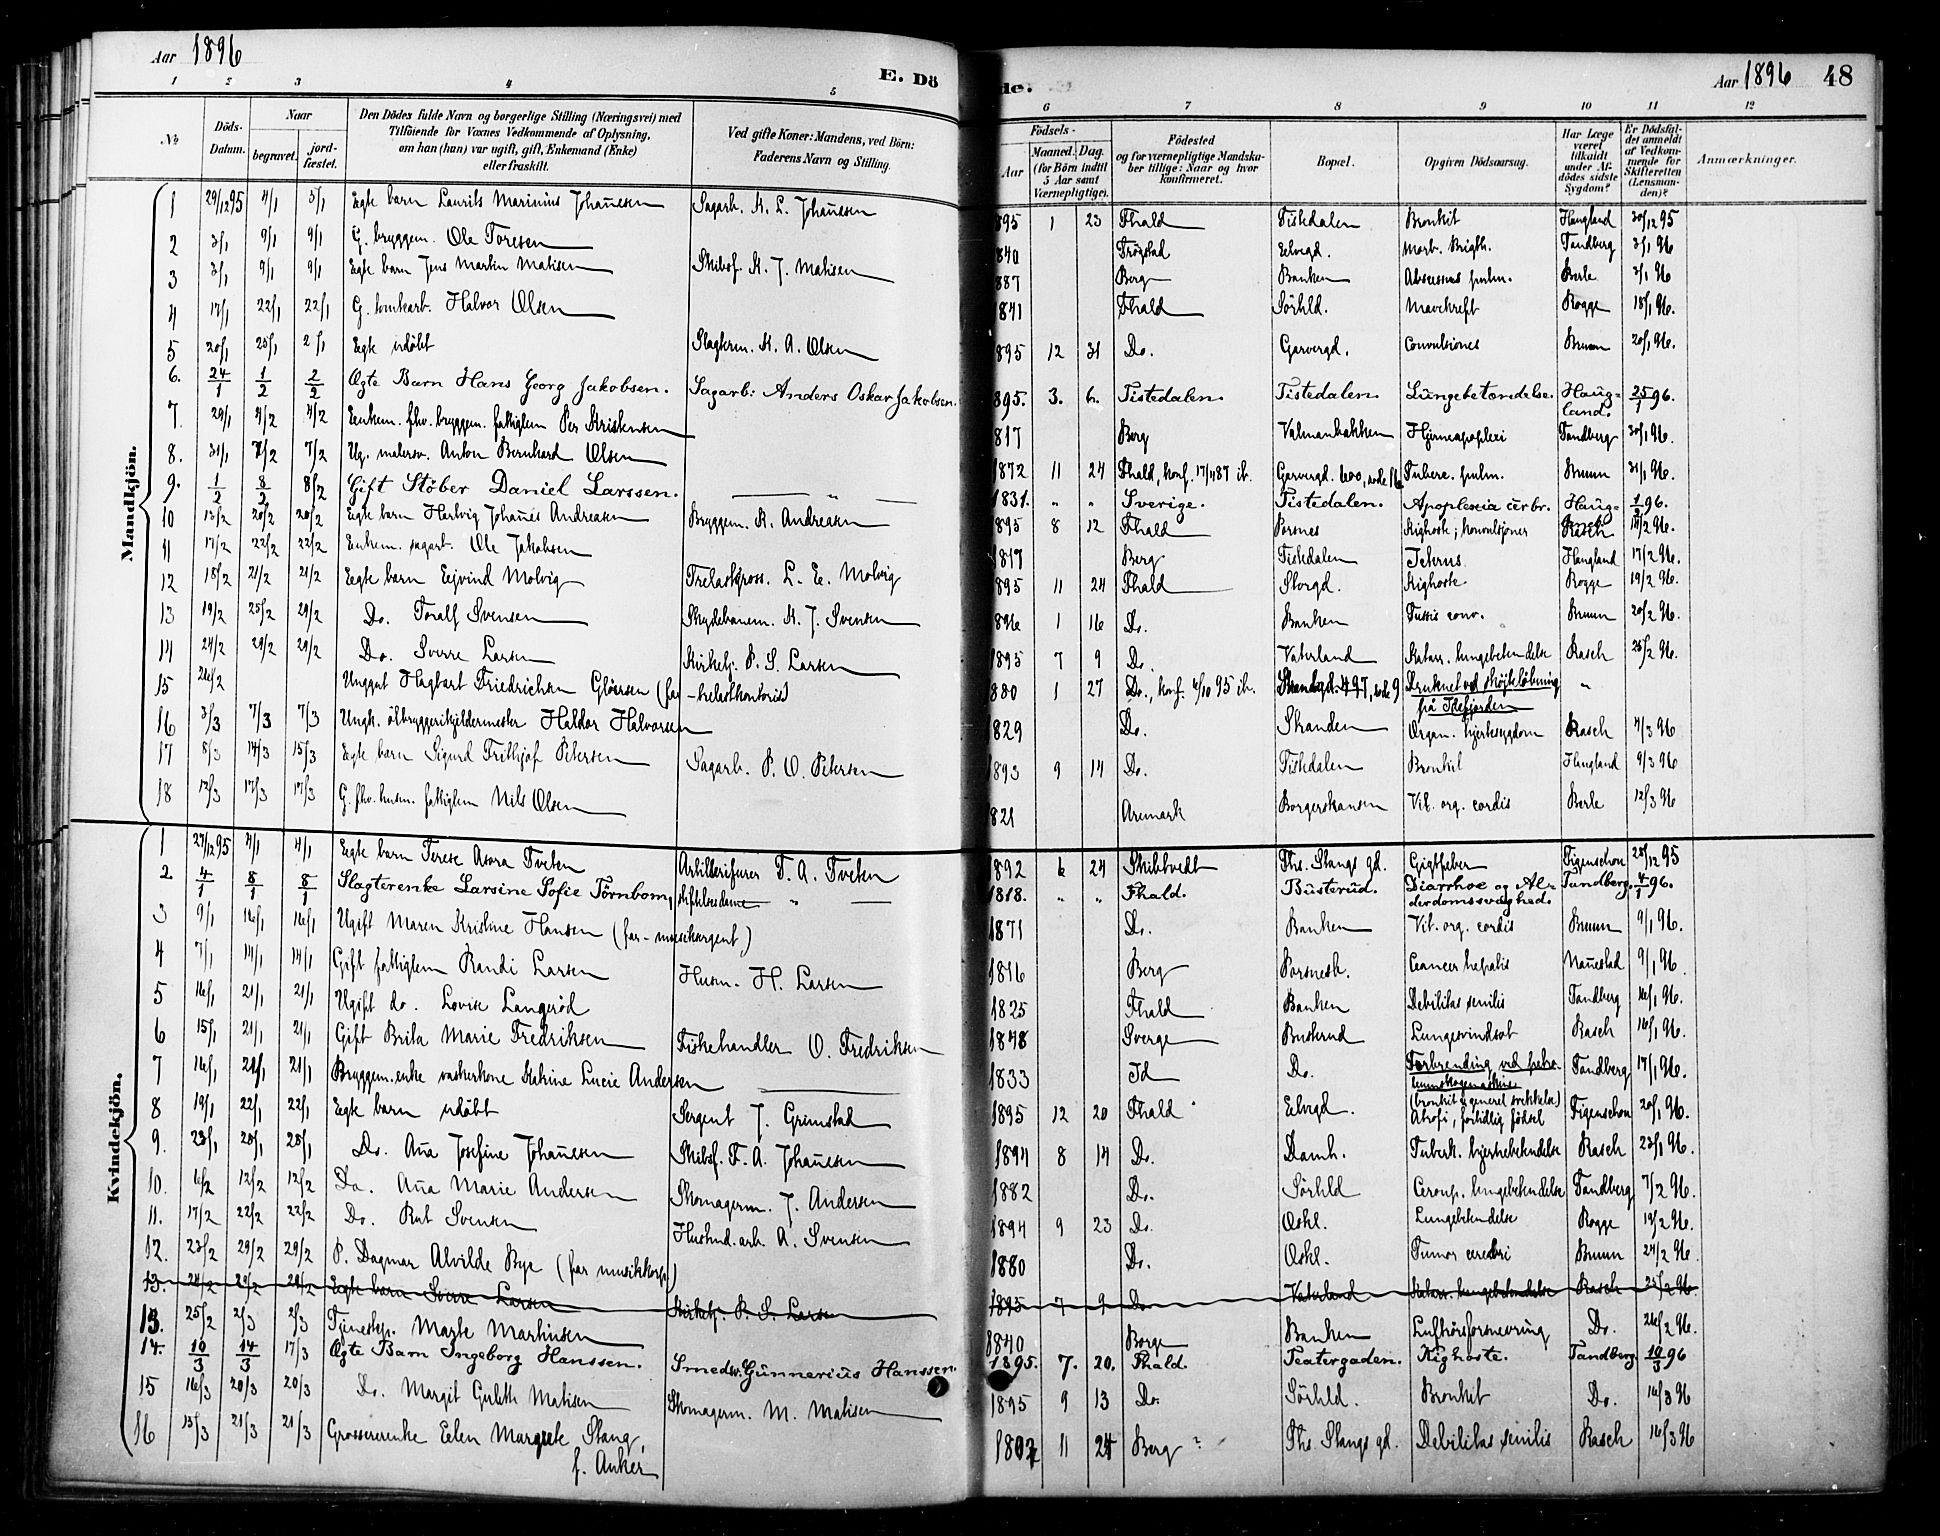 Aar 1896
E. Dö
de.
Aar 1896 48
1 2 3 4 5 6 7 8 9 10 11 12
No. Döds-Datum. Naar begravet. jord-fæstet. Den Dödes fulde Navn og borgerlige Stilling (Næringsvei) med Tilföiende for Voxnes Vedkommende af Oplysning, om han (hun) var ugift, gift, Enkemand (Enke) eller fraskilt. Ved gifte Koner: Mandens, ved Börn: Faderens Navn og Stilling. Födsels- Aar Maaned. Dag. (for Börn indtil 5 Aar samt Værnepligtige). Födested og for værnepligtige Mandskaber tillige: Naar og hvor konfirmeret. Bopæl. Opgiven Dödsaarsag. Har Læge været tilkaldt under Afdödes sidste Sygdom? Er Dödsfaldet anmeldt af Vedkommende for Skifteretten (Lensmanden)? Anmærkninger.
Mandkjön.
1 29/12 95 4/1 5/1 Egte barn Laurits Marinius Johanssen Sagarb. K. L. Johanssen 895 1 23 Fhald Tistedalen Bronkit Haugland 30/12 95
2 3/1 9/1 9/1 G. bryggem. Ole Toresen 840 Trögstad Elvegd. Morb. Brigth. Tandberg 3/1 96
3 3/1 9/1 9/1 Egte barn Jens Martin Matisen Skibsf. K. J. Matisen 887 Berg Banken Abscessus pulm. Berle 3/1 96
4 17/1 22/1 22/1 G. tomtearb. Halvor Olsen 841 Fhald Sörhld. Mavekreft Rogge 18/1 96.
5 20/1 25/1 2/1 Egte udöbt Slagterm. K. A. Olsen 895 12 31 Do. Garverгd. Convulsiones Bruun 20/1 96.
6. 24/1 1/2 2/2 Ægte Barn Hans Georg Jakobsen. Sagarb: Anders Oskar Jakobsen. 895. 3. 6. Tistedalen. Tistedalen. Lungebetændelse. Haugland. 25/1 96.
7. 29/1 4/2 4/2 Enkem. fhv. bryggem. fattiglem Per Kristensen 817 Berg Valmanbakken Hjerneapoplexi Tandberg 30/1 96.
8. 31/1 7/2 7/2 Ug. malersv. Anton Bernhard Olsen 1872 11 24 Fhald, konf. 17/4 87 ib. Garvergd. 600, rode 16 Tuberc. pulm. Bruun 31/1 96.
9. 1/2 8/2 8/2 Gift Stöber Daniel Larssen. „ 1831. „ „ Sverige. Tistedalen. Apoplexia cerbr. Haug- 1/2 96.
10 13/2 20/2 20/2 Egte barn Hartvig Johanes Andreasen Bryggem. K. Andreasen 895 8 12 Fhald Porsnes Kighoste; konvulsjoner Rasch 18/2 96.
11 17/2 22/2 22/2 Enkem. sagarb. Ole Jakobsen 1817 Berg Tistedalen Icterus Haugland 17/2 96.
12 18/2 21/2 21/2 Egte barn Ejvind Molvig Trelastgross. L. E. Molvig 895 11 24 Fhald Storgd. Kighoste Rogge 19/2 96.
13 19/2 25/2 29/2 Do. Toralf Svensen Skydebanem. K. J. Svensen 896 1 16 Do. Banken Tussis conv. Bruun 20/2 96.
14 24/2 29/2 29/2 Do. Sverre Larsen Kirketj. P. S. Larsen 1895 7 9 Do. Vaterland Katarr. lungebetendelse Rasch 25/2 96.
15 26/2 Unggut Hagbart Friedrichsen Glörsen (far -trelastkontorist) 880 1 27 Do., konf. 6/10 95 ib. Strandgd. 497, rode 9 Druknet ved skøjteløbning på Idefjorden „
16 3/3 7/3 7/3 Ungk. ölbryggerikjeldermester Haldor Halvorsen 829 Do. Skanden Organ. hjertesygdom Rasch 4/3 96
17 8/3 14/3 15/3 Egte barn Sigurd Fritbjof Petersen Sagarb. P. O. Petersen 1893 9 14 Do. Tistedalen Bronkit Haugland 9/3 96
18 12/3 17/3 17/3 G. fhv. husm. fattiglem Nils Olsen 821 Aremark Borgerskansen Vit. org. cordis Berle 12/3 96
Kvindekjön.
1 27/12 95 4/1 4/1 Egte barn Terese Asora Tveten Artillerifurer T. A. Tveten 1892 6 24 Skibtvedt Ths. Stangs gd. Gigtfeber Figenschou 28/12 95
2 4/1 8/1 8/1 Slagterenke Larsine Sofie Törnbom, stiftelsesdame „ 1818. „ „ Fhald. Busterud. Diarrhoe og Alderdomssvaghed. Tandberg. 4/1 96.
3 9/1 16/1 16/1 Ugift Maren Kristine Hansen (far - musiksergent) 1871 Do. Banken Vit. org. cordis Bruun 9/1 96.
4 7/1 14/1 14/1 Gift fattiglem Randi Larsen Husm. H. Larsen 1816 Berg Porsnesk. Cancer hepatis Nannestad 9/1 96.
5 16/1 21/1 21/1 Ugift do. Lovise Langeröd 1825 Fhald Banken Debilitas senilis Tandberg 16/1 96.
6 15/1 21/1 21/1 Gift Brita Marie Fredriksen Fiskehandler O. Fredriksen 1848 Sverge Busterud Lungesvindsot Rasch 16/1 96.
7 16/1 21/1 21/1 Bryggem. enke vaskerkone Katrine Lucie Andersen 1833 Id Do. Forbrending ved petroleumskogemaskine (bronkit & generel svekkelse) Tandberg 17/1 96.
8 19/1 22/1 22/1 Egte barn udöbt Sergent J. Grimstad 1895 12 20 Fhald Elvegd. Atrofi, fortidlig fødsel Figenschou 20/1 96.
9. 23/1 28/1 28/1 Do. Ana Josefine Johanssen Skibsf. F. A. Johanssen 1894 8 14 Do. Damh. Tuberk. hjernebetendelse Rasch 23/1 96.
10. 6/2 12/2 12/2 Do. Ana Marie Andersen Skomagerm. J. Andersen 1882 Do. Sörhld Croup. lungebetendelse Tandberg 7/2 96.
11. 17/2 22/2 22/2 Do. Rut Svensen Huskud. arb. A. Svensen 1894 9 23 Do. Oskl. Lungebetendelse Rogge 19/2 96.
12. 23/2 29/2 29/2 P. Dagmar Alvilde Bye (far musikkorp.) 1880 Do. Oskl. Tumor cerebri Bruun 24/2 96.
13. 24/2 29/2 29/2 Egte barn Sverre Larsen Kirketj. P. S. Larsen 1895 7 9 Do Vaterland Katarr. lungebetendelse Rasch 25/2 96.
13. 25/2 2/3 2/3 Tjenestep. Marte Martinsen 1840 Borge Banken Luftrörsforsnevring Do. 26/2 96.
14. 10/3 14/3 17/3 Ægte Barn Ingeborg Hanssen. Smedsv. Gunnerius Hanssen. 1895. 7. 20. Fhald. Teatergaden. Kighoste. Tandberg. 10/3 96
15 16/3 20/3 20/3 Do. Margit Gulette Matisen Skomagerm. M. Matisen 1895 9 13 Do. Sörhld. Bronkit Do. 16/3 96
16 13/3 21/3 21/3 Grossererenke Elen Margrete Stang, f. Anker 1807 11 24 Berg ? Ths. Stangs gd. Debilitas senilis Rasch 16/3 96